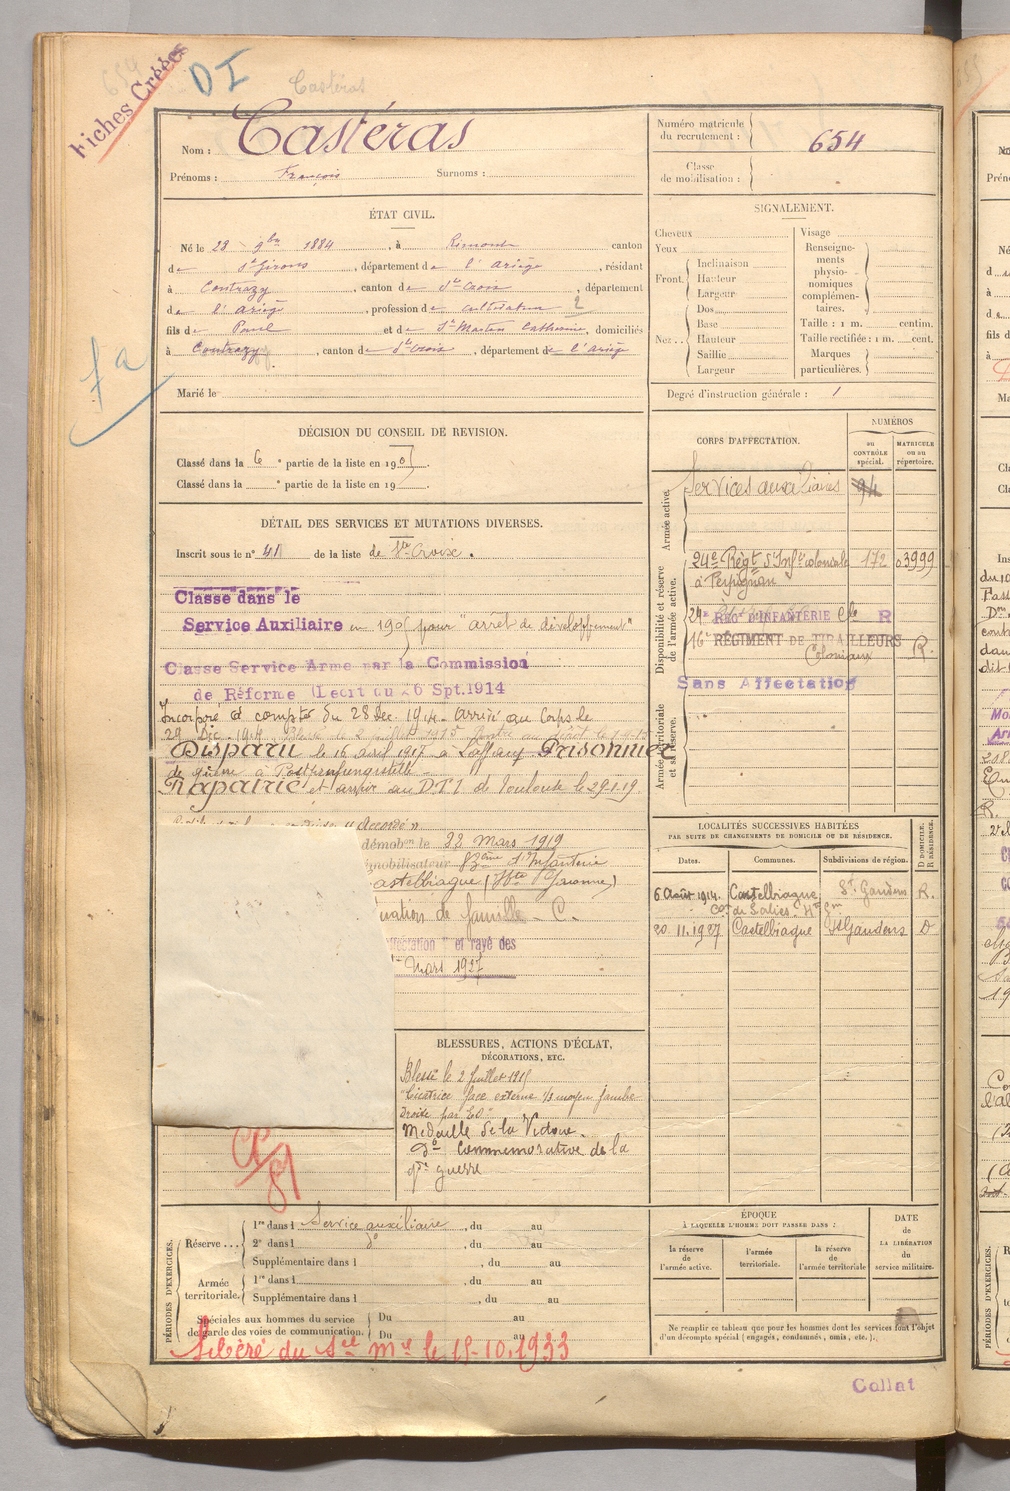 Fiches Créées
DI
Castéras
Nom : Castéras
Prénoms : François Surnoms :
Numéro matricule du recrutement : 654
Classe de mobilisation :
ÉTAT CIVIL.
Né le 28 9bre 1884, à Rimont canton
de St Girons, département de l'Ariège, résidant
à Contrazy, canton de Ste Croix, département
de l'Ariège, profession de cultivateur 2
fils de Paul et de St Martin Catherine, domiciliés
à Contrazy, canton de Ste Croix, département de l'Ariège
Marié le
fa
SIGNALEMENT.
Cheveux
Yeux
Front. Inclinaison
Hauteur
Largeur
Nez.. Dos
Base
Hauteur
Saillie
Largeur
Visage
Renseignements physionomiques complémentaires.
Taille : 1 m. centim.
Taille rectifiée : 1 m. cent.
Marques particulières.
Degré d'instruction générale : 1
DÉCISION DU CONSEIL DE REVISION.
Classé dans la 6e partie de la liste en 190
Classé dans la e partie de la liste en 19
DÉTAIL DES SERVICES ET MUTATIONS DIVERSES.
Inscrit sous le n° 41 de la liste de Ste Croix.
Classé dans le
Service Auxiliaire en 190 pour "arrêt de développement"
Classé Service Armé par la Commission
de Réforme (Décrit du 26 Spt.1914
Incorporé à compter du 28 Déc. 1914. Arrivé au Corps le
29 Déc. 1914
Disparu le 16 avril 1917 à Laffaux Prisonnier
de guerre à
Rapatrié et arrivé au D.T.I de Toulouse le 29-1-19.
"Accordé"
démobon le 22 Mars 1919
émobilisateur d'Infanterie
astelbiague (Hte Garonne)
uation de famille - C.
ffectation" et rayé des
Mars 1927
CORPS D'AFFECTATION.
NUMÉROS
au CONTRÔLE spécial.
MATRICULE ou au répertoire.
Armée active.
Services auxiliaires 94
Disponibilité et réserve de l'armée active.
24e Régt d'Infie coloniale 172 03999
à Perpignan
24e REG D'INFANTERIE Cle R
16e RÉGIMENT DE TIRAILLEURS
Coloniaux R.
Sans Affectation
Armée territoriale et sa réserve.
LOCALITÉS SUCCESSIVES HABITÉES
PAR SUITE DE CHANGEMENTS DE DOMICILE OU DE RÉSIDENCE.
Dates. Communes. Subdivisions de région. D DOMICILE. R RÉSIDENCE.
6 Août 1914. Castelbiague St Gaudens R.
con de Salies. Hte Gne
20.11.1927 Castelbiague St Gaudens D
BLESSURES, ACTIONS D'ÉCLAT,
DÉCORATIONS, ETC.
Blessé le 2 Juillet 1915
"Cicatrice face externe 1/3 moyen jambe
droite par EO"
Médaille de la Victoire.
do Commémorative de la
gde guerre
PÉRIODES D'EXERCICES.
Réserve... 1re dans l Service auxiliaire, du au
2e dans l do, du au
Supplémentaire dans l, du au
Armée territoriale. 1re dans l, du au
Supplémentaire dans l, du au
Spéciales aux hommes du service de garde des voies de communication. Du au
Du au
Libéré du Sce Mre le 15-10.1933
ÉPOQUE
À LAQUELLE L'HOMME DOIT PASSER DANS :
la réserve de l'armée active.
l'armée territoriale.
la réserve de l'armée territoriale
DATE de LA LIBÉRATION du service militaire.
Ne remplir ce tableau que pour les hommes dont les services font l'objet
d'un décompte spécial (engagés, condamnés, omis, etc.).
Collat